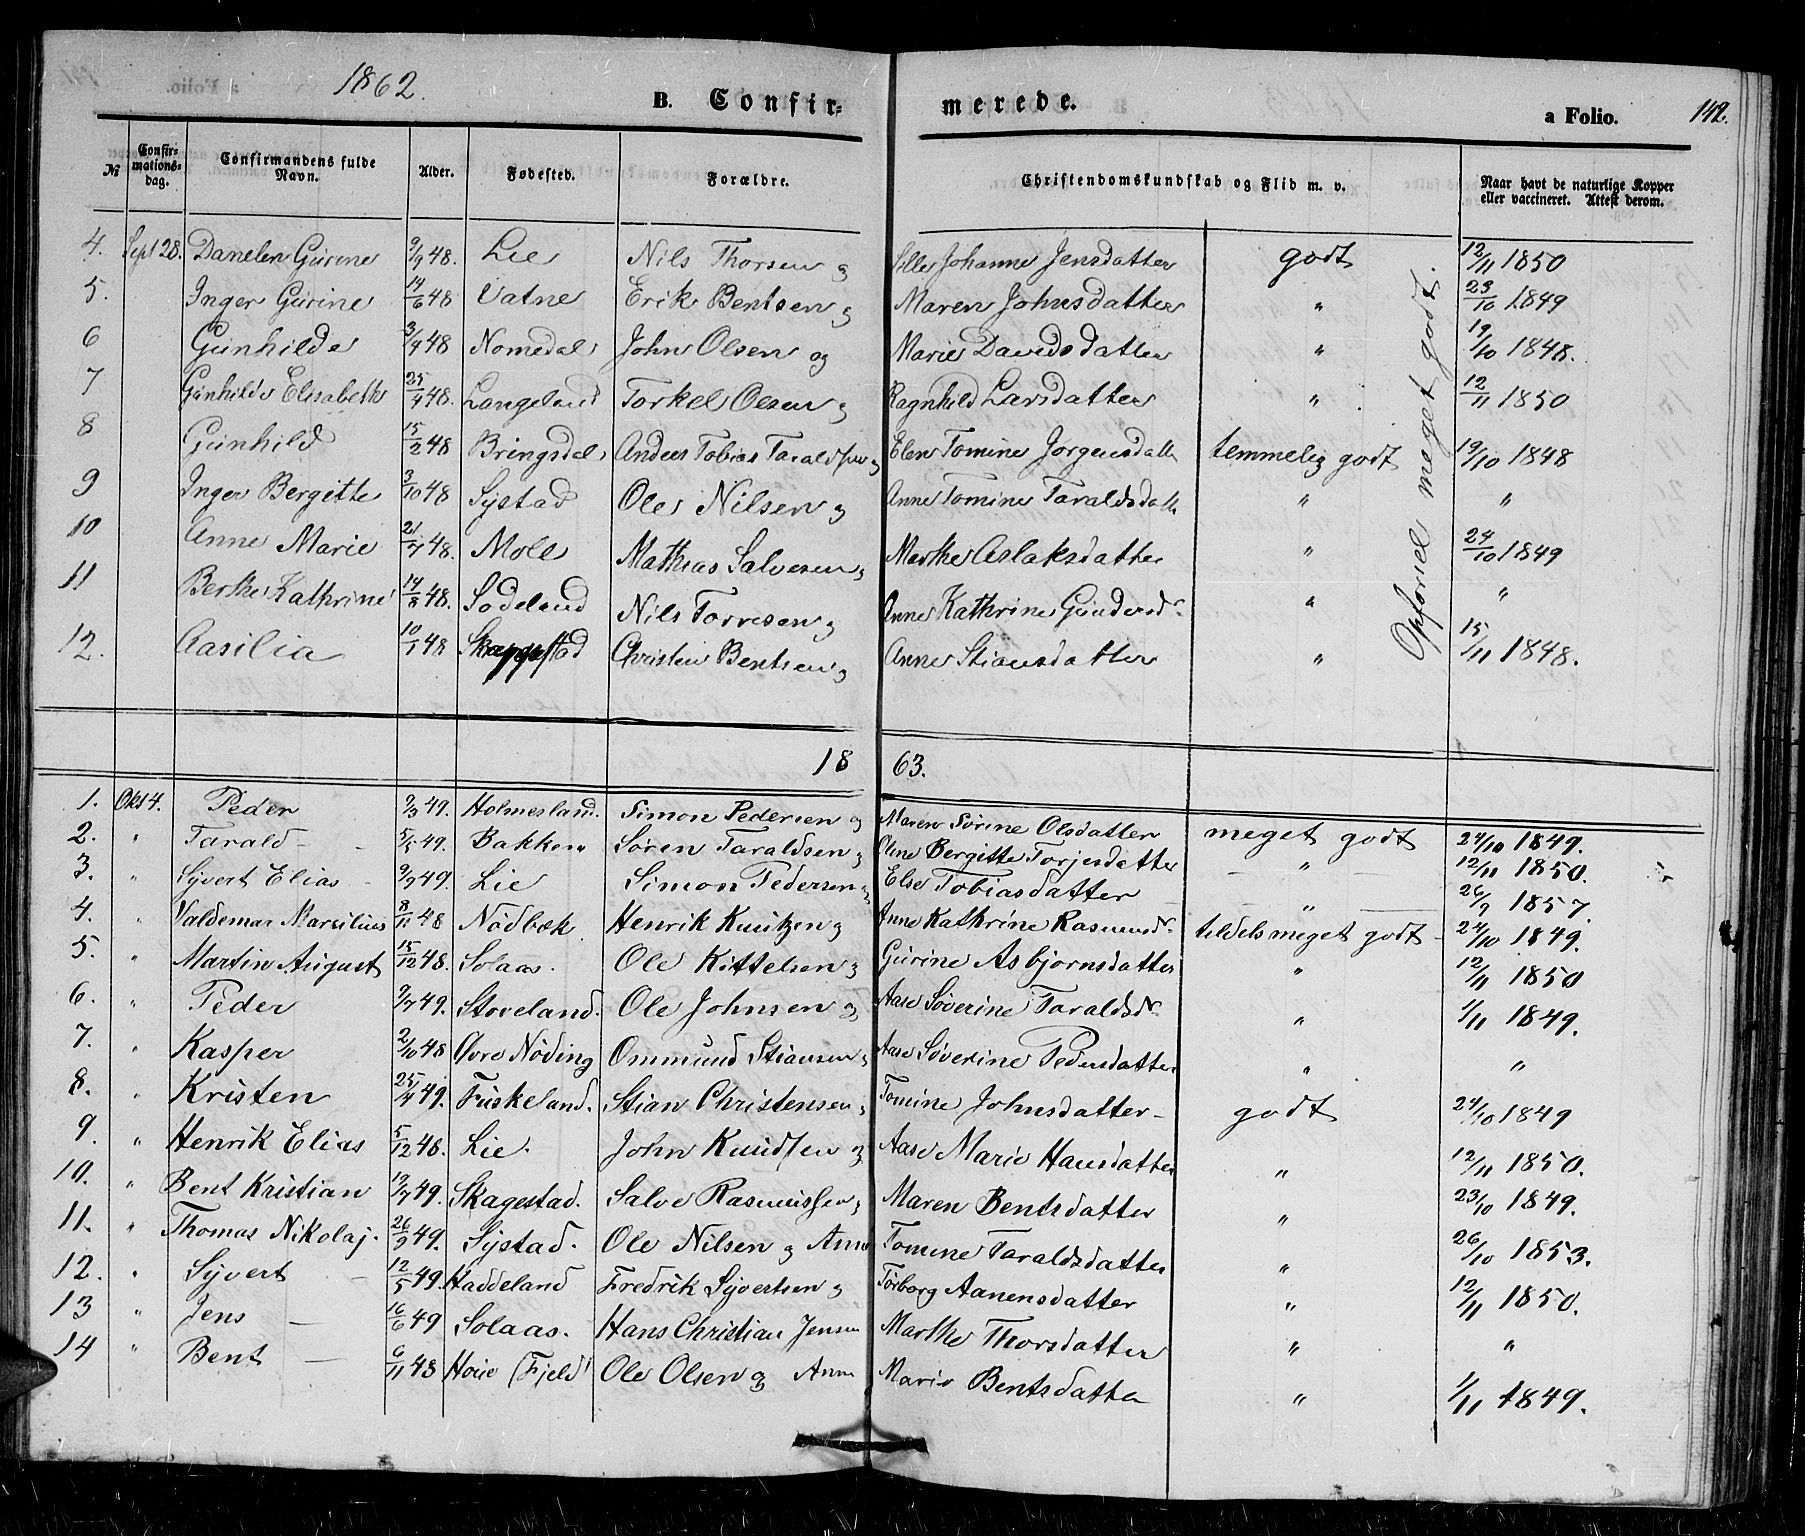 1862.
B. Confir-
merede.
a Folio. 142.
№ Confirmationsdag. Confirmandens fulde Navn. Alder. Fødested. Forældre. Christendomskundskab og Flid m. v. Naar havt de naturlige Kopper eller vaccineret. Attest derom.
4. Sept 28. Danelen Gurine 9/9 48. Lie Nils Thorsen og Sille Johanne Jensdatter godt 12/11 1850
5. Inger Gurine 14/6 48 Vatne Erik Bentsen og Maren Johnsdatter " 23/10 1849
6 Gunhilde 3/9 48 Nomedal John Olsen og Marie Davidsdatter " 19/10 1848.
7 Gunhilde Elisabeth 25/4 48. Langeland Torkel Olsen og Ragnhild Larsdatter " 12/11 1850
8 Gunhild 15/2 48 Bringsdal Anders Tobias Taraldsen og Elen Tomine Jorgensdatt temmelig godt 19/10 1848
9 Inger Bergitte 3/10 48 Systad Ole Nilsen og Anne Tomine Taraldsdatt " "
10 Anne Marie 21/7 48. Moll Mathias Salvesen og Marthe Aslaksdatter " 24/10 1849
11 Berthe Kathrine 14/8 48. Sodeland Nils Torresen og Anne Kathrine Gundersdr " "
12. Aasilia 10/1 48 Skagestad Christen Bentsen og Anne Stiansdatter " 15/11 1848.
Opførsel meget godt.
18 63.
1. Okt 4. Peder 9/3 49. Holmesland. Simon Pedersen og Maren Sørine Olsdatter meget godt 24/10 1849.
2. " Tarald - 5/5 49. Bakken Søren Taraldsen og Oline Bergitte Torjesdatter - " - 12/11 1850.
3. " Syvert Elias - 9/7 49. Lie Simon Pedersen og Else Tobiasdatter - " - 26/9 1857.
4. " Valdemar Marsilius 8/11 48 Nödbæk Henrik Knutzen og Anne Kathrine Rasmusdr tildels meget godt - 24/10 1849.
5. " Martin August 15/12 48. Solaas. Ole Kittelsen og Gurine Asbjørnsdatter " 12/11 1850
6. " Peder 9/7 49. Stoveland. Ole Johnsen og Aase Søverine Taraldsdr " 1/11 1849.
7. " Kasper 2/10 48 Øvre Nøding Ommund Stiansen og Aase Søverine Pedersdatter " "
8. " Kristen 25/4 49. Fuskeland. Stian Christensen og Tomine Johnsdatter - godt 24/10 1849
9. " Henrik Elias 5/12 48. Lie. John Knudsen og Aase Marie Hansdatter " 12/11 1850.
10. " Bent Kristian 19/7 49. Skagestad. Salve Rasmussen og Maren Bentsdatter " 23/10 1849.
11. " Thomas Nikolaj. 26/9 49. Systad. Ole Nilsen og Anne Tomine Taraldsdatter " 26/10 1853.
12. " Syvert - 12/5 49. Haddeland Fredrik Syvertsen og Torborg Aanensdatter " 12/11 1850.
13 " Jens - 16/6 49 Solaas. Hans Christian Jensen Marthe Thorsdatter " "
14 " Bent - 6/11 48 Houe (Fjeld) Ole Olsen og Anne Marie Bentsdatter " 1/11 1849.